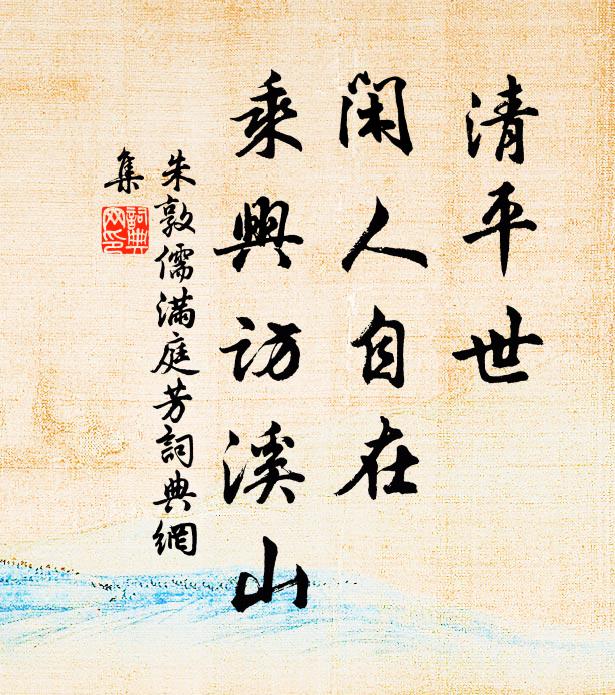 清平世
閑人自在
乘興訪溪山
朱敦儒滿庭芳詞典網
集
詞典
网印